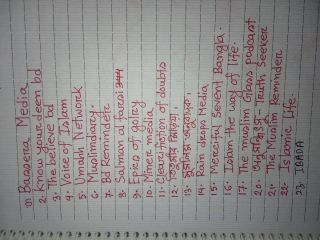 1) Baseera Media
2. Know your deen bd
3. The believe bd
4. Voice of Islam
5. Ummah Network
6. Muslimdiary.
7. Bd Reminder
8. Salman al farsi 344
9. Epics of glory
10. Miner media
11. Clearification of doubts
12.
13.
14. Rain drops Media
15. Merciful Sevent Bangla.
16. Islam the way of life.
17. The muslim Glass podcast
20. Truth Seeker
21. The Muslim Reminder
22. Islamic Life
23. IBADA